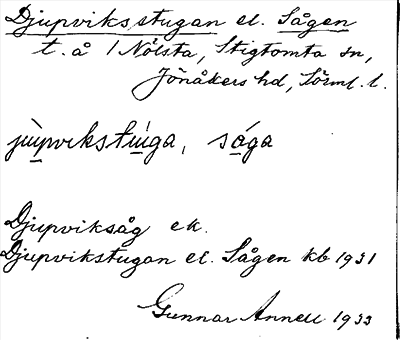 Djupviksstugan el. Sågen
t. å 1 Nölsta, Stigtomta sn,
Jönåkers hd, Sörml. l.
jùpvikstúga, såga
Djupviksåg ek.
Djupvikstugan el. Sågen kb 1931
Gunnar Annell 1933